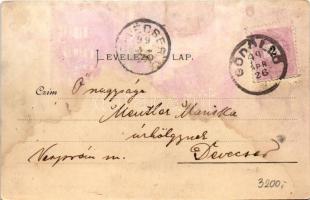 DEVECSER
99
LEVELEZŐ LAP.
GÖDÖLLŐ
99
APR
26
Czim Ő nagysága
Mentler Mariska
úrhölgynek
Veszprém m. Devecser
3200,-